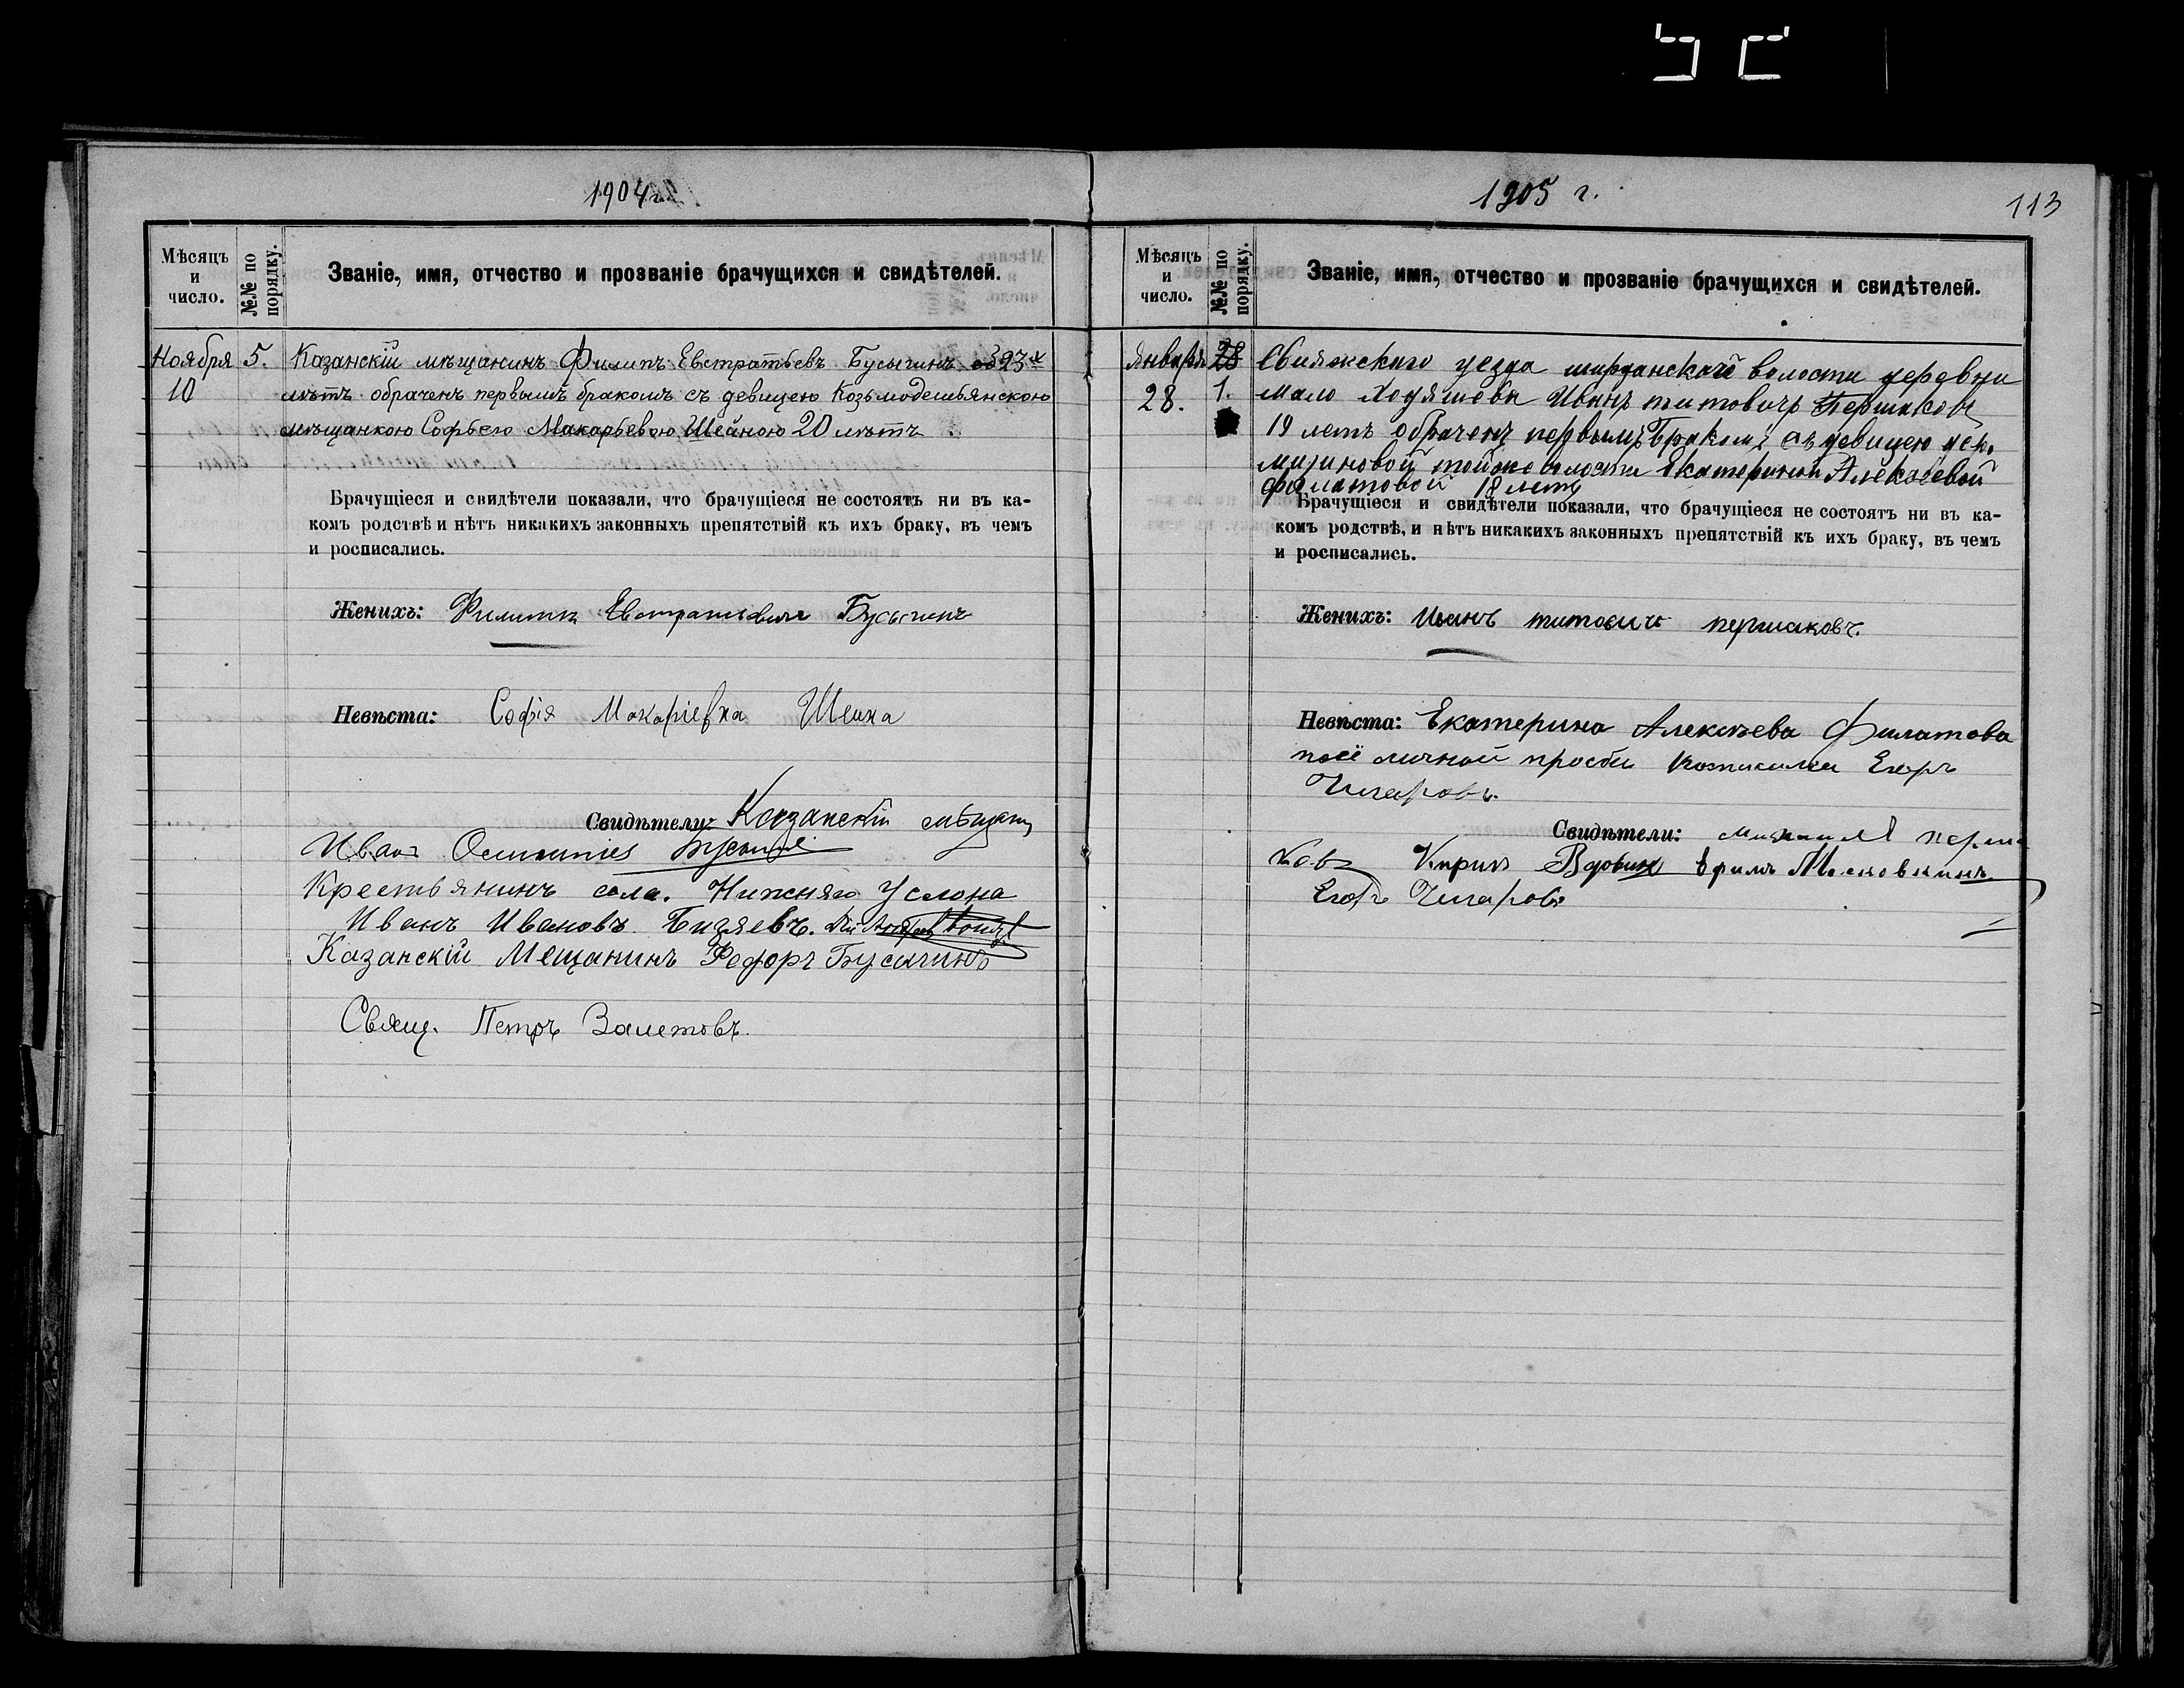 1904 г.
Мѣсяцъ и число.
№№ по порядку.
Званіе, имя, отчество и прозваніе брачущихся и свидѣтелей.
Ноября 10
5.
Казанскій мѣщанинъ Филипъ Евстратьевъ Бусыгинъ 23х
лѣтъ обраченъ первымъ бракомъ съ девицею Козьмодемьянскою
мѣщанкою Софьею Макарьевою Шеиною 20 лѣтъ
Брачущіеся и свидѣтели показали, что брачущіеся не состоятъ ни въ ка-
комъ родствѣ и нѣтъ никакихъ законныхъ препятствій къ ихъ браку, въ чемъ
и росписались.
Женихъ: Филиппъ Евстратьевичъ Бусыгинъ
Невѣста: Софія Макаріевна Шеина
Свидѣтели: Казанскій мѣщанин
Иванъ
Крестьянинъ села. Нижняго Услона
Иванъ Ивановъ Бизяевъ.
Казанскій Мещанинъ Федоръ Бусыгинъ
Свящ. Петръ Залетовъ.
1905 г.
113
Мѣсяцъ и число.
№№ по порядку.
Званіе, имя, отчество и прозваніе брачущихся и свидѣтелей.
Января 28.
28
1.
Свияжскаго уезда ширданскай волости деревни
мало Ходяшева Иванъ титовичъ Першаковъ
19 летъ обраченъ первымъ бракомъ съ девицею дер.
мизиновой тойже волости Екатериной Алексеевой
филатовой 18 летъ
Брачущіеся и свидѣтели показали, что брачущіеся не состоятъ ни въ ка-
комъ родствѣ, и нѣтъ никакихъ законныхъ препятствій къ ихъ браку, въ чемъ
и росписались.
Женихъ: Иванъ титовичъ першаковъ.
Невѣста: Екатерина Алексѣева Филатова
поеё личной прозби Егоръ
Чигаровъ.
Свидѣтели: михаилъ перша
ковъ Кирилъ Вдовинъ Московкинъ
Егоръ Чигаровъ